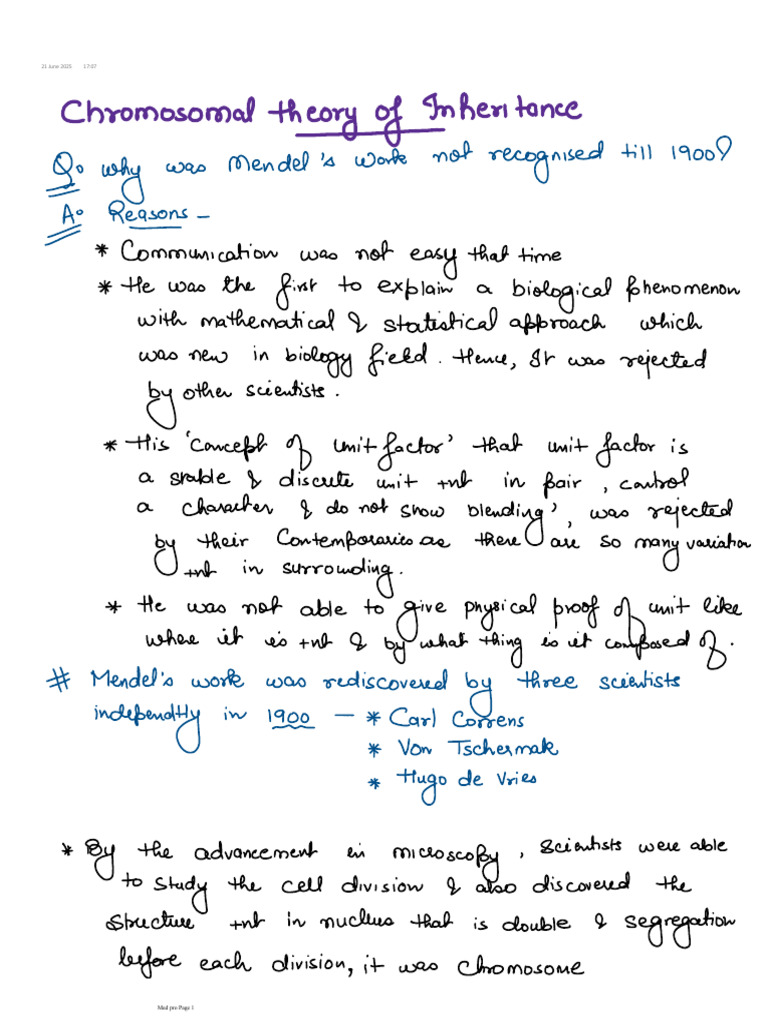 21 June 2025 17:07
Chromosomal theory of Inheritance
Q. why was Mendel's work not recognised till 1900?
A. Reasons -
* Communication was not easy that time
* He was the first to explain a biological phenomenon
with mathematical & statistical approach which
was new in biology field. Hence, It was rejected
by other scientists.
* His 'concept of unit factor' that unit factor is
a stable & discrete unit +nt in pair, control
a character & do not show blending', was rejected
by their Contemporaries as there are so many variation
+nt in surrounding.
* He was not able to give physical proof of unit like
where it is +nt & by what thing is it composed of.
# Mendel's work was rediscovered by three scientists
independtly in 1900 - * Carl Correns
* Von Tschermak
* Hugo de Vries
* By the advancement in microscopy, Scientists were able
to study the cell division & also discovered the
structure +nt in nucleus that is double & segregation
before each division, it was chromosome
Med pre Page 1